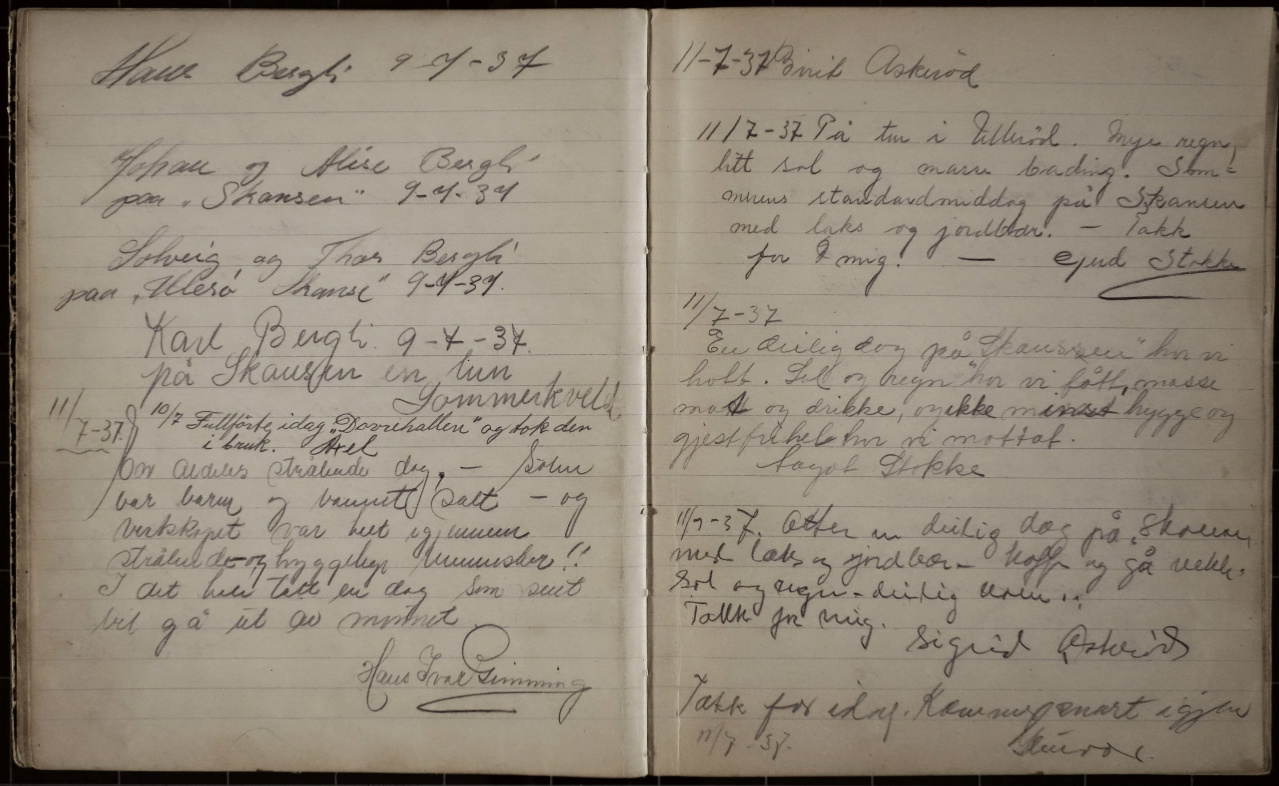 Hans Bergli 9-7-37
Johan og Alise Bergli
paa "Skansen" 9-7-37
Solveig og Thor Bergli
paa "Ulerö Skanse" 9-7-37.
Karl Bergli. 9-7-37.
på Skansen en lun
Sommerkveld.
11/7-37.
10/7 Fullförte idag "Dovrehallen" og tok den
i bruk. Axel
En aldeles strålende dag. — Solen
var varm og vannet salt — og
vertskapet var helt igjennem
strålende og hyggelige mennesker!!
I det hele tatt en dag som sent
vil gå ut av minnet.
Hans Ivar Gimming
11-7-37 Birit Askeröd
11/7-37 På tur i Ulleröd. Mye regn,
litt sol og masse bading. Som-
merens standardmiddag på Skansen
med laks og jordbær. — Takk
for mig. — Stokke
11/7-37
En deilig dag på "Skanssen" har vi
hatt. Sol og regn har vi fått, masse
mat og drikke, og ikke minst hygge og
gjestfrihet har vi mottat.
Aagot Stokke
11/7-37. Atter en deilig dag på "Skansen"
med laks og jordbær - kaffe og
Sol og regn - deilig
Takk for mig.
Sigrid Askeröd
Takk for idag. Kommer snart igjen
11/7-37.